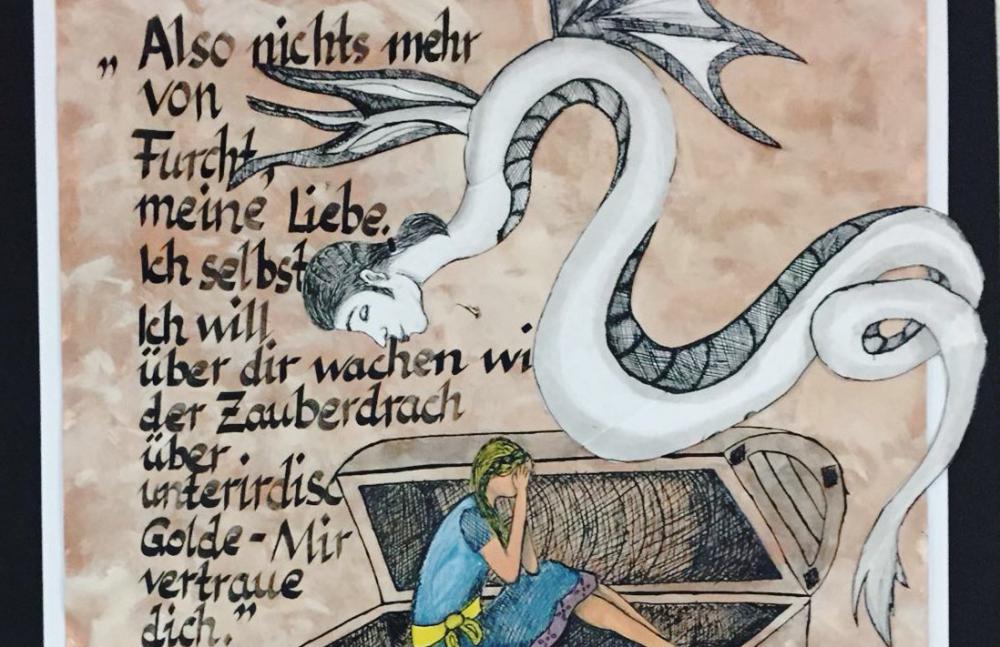 „ Also nichts mehr
von
Furcht,
meine Liebe.
Ich selbst
Ich will
über dir wachen wi
der Zauberdrach
über
unterirdisc
Golde - Mir
vertraue
dich."